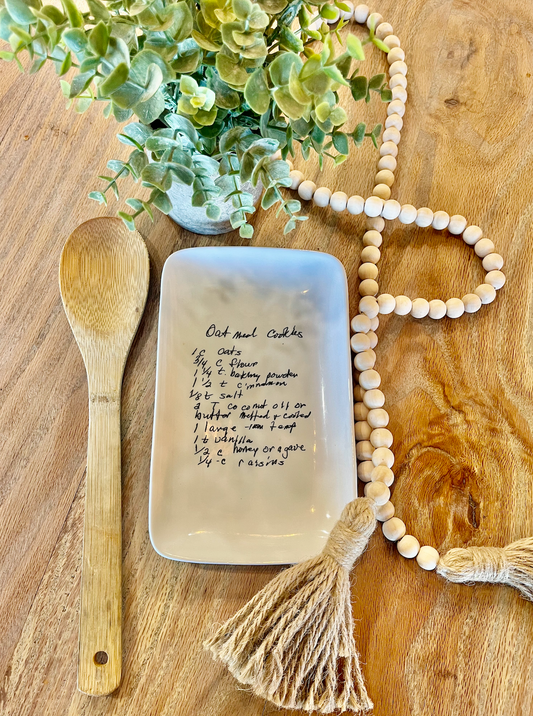 Oatmeal Cookies
1 c oats
3/4 c flour
1 1/4 t baking powder
1 1/2 t cinnamon
1/8 t salt
2 T coconut oil or
butter melted + cooled
1 large - room temp
1 t vanilla
1/2 c honey or agave
1/4 -c raisins